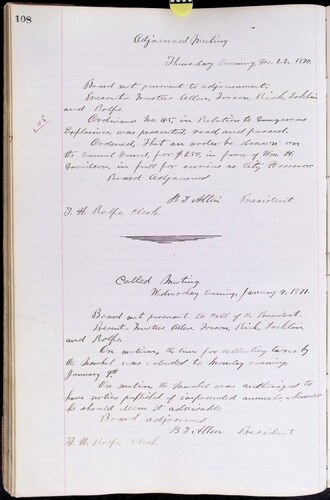 108
Adjourned Meeting
Thursday Evening, Dec. 22, 1870.
Board met pursuant to adjournment.
Present Trustees Allen, Rich,
and Rolfe
Ordinance No. 45, in Relation to Dangerous
Explosives, was presented, read and passed.
Ordered, That an order be drawn on
the General Fund, for $250, in favor of Wm H.
Davidson, in full for services as City Assessor.
Board Adjourned
B T Allen President
T. H. Rolfe Clerk
Called Meeting
Wednesday Evening, January 4, 1871.
Board met pursuant to call of the President.
Present Trustees Allen, Rich,
and Rolfe
On motion, the time for collecting taxes by
the Marshal was extended to Monday evening
January 9th
On motion the Marshal was authorized to
have notices published of impounded animals, whenever
he should deem it advisable
Board adjourned
B T Allen President
T. H. Rolfe Clerk